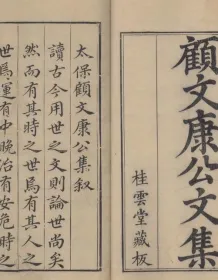 顧文康公文集
桂雲堂藏板
太保顧文康公集叙
讀古今用世之文則論世尚矣
然而有其時之世焉有其人之
世焉運有中晚治有安危時之